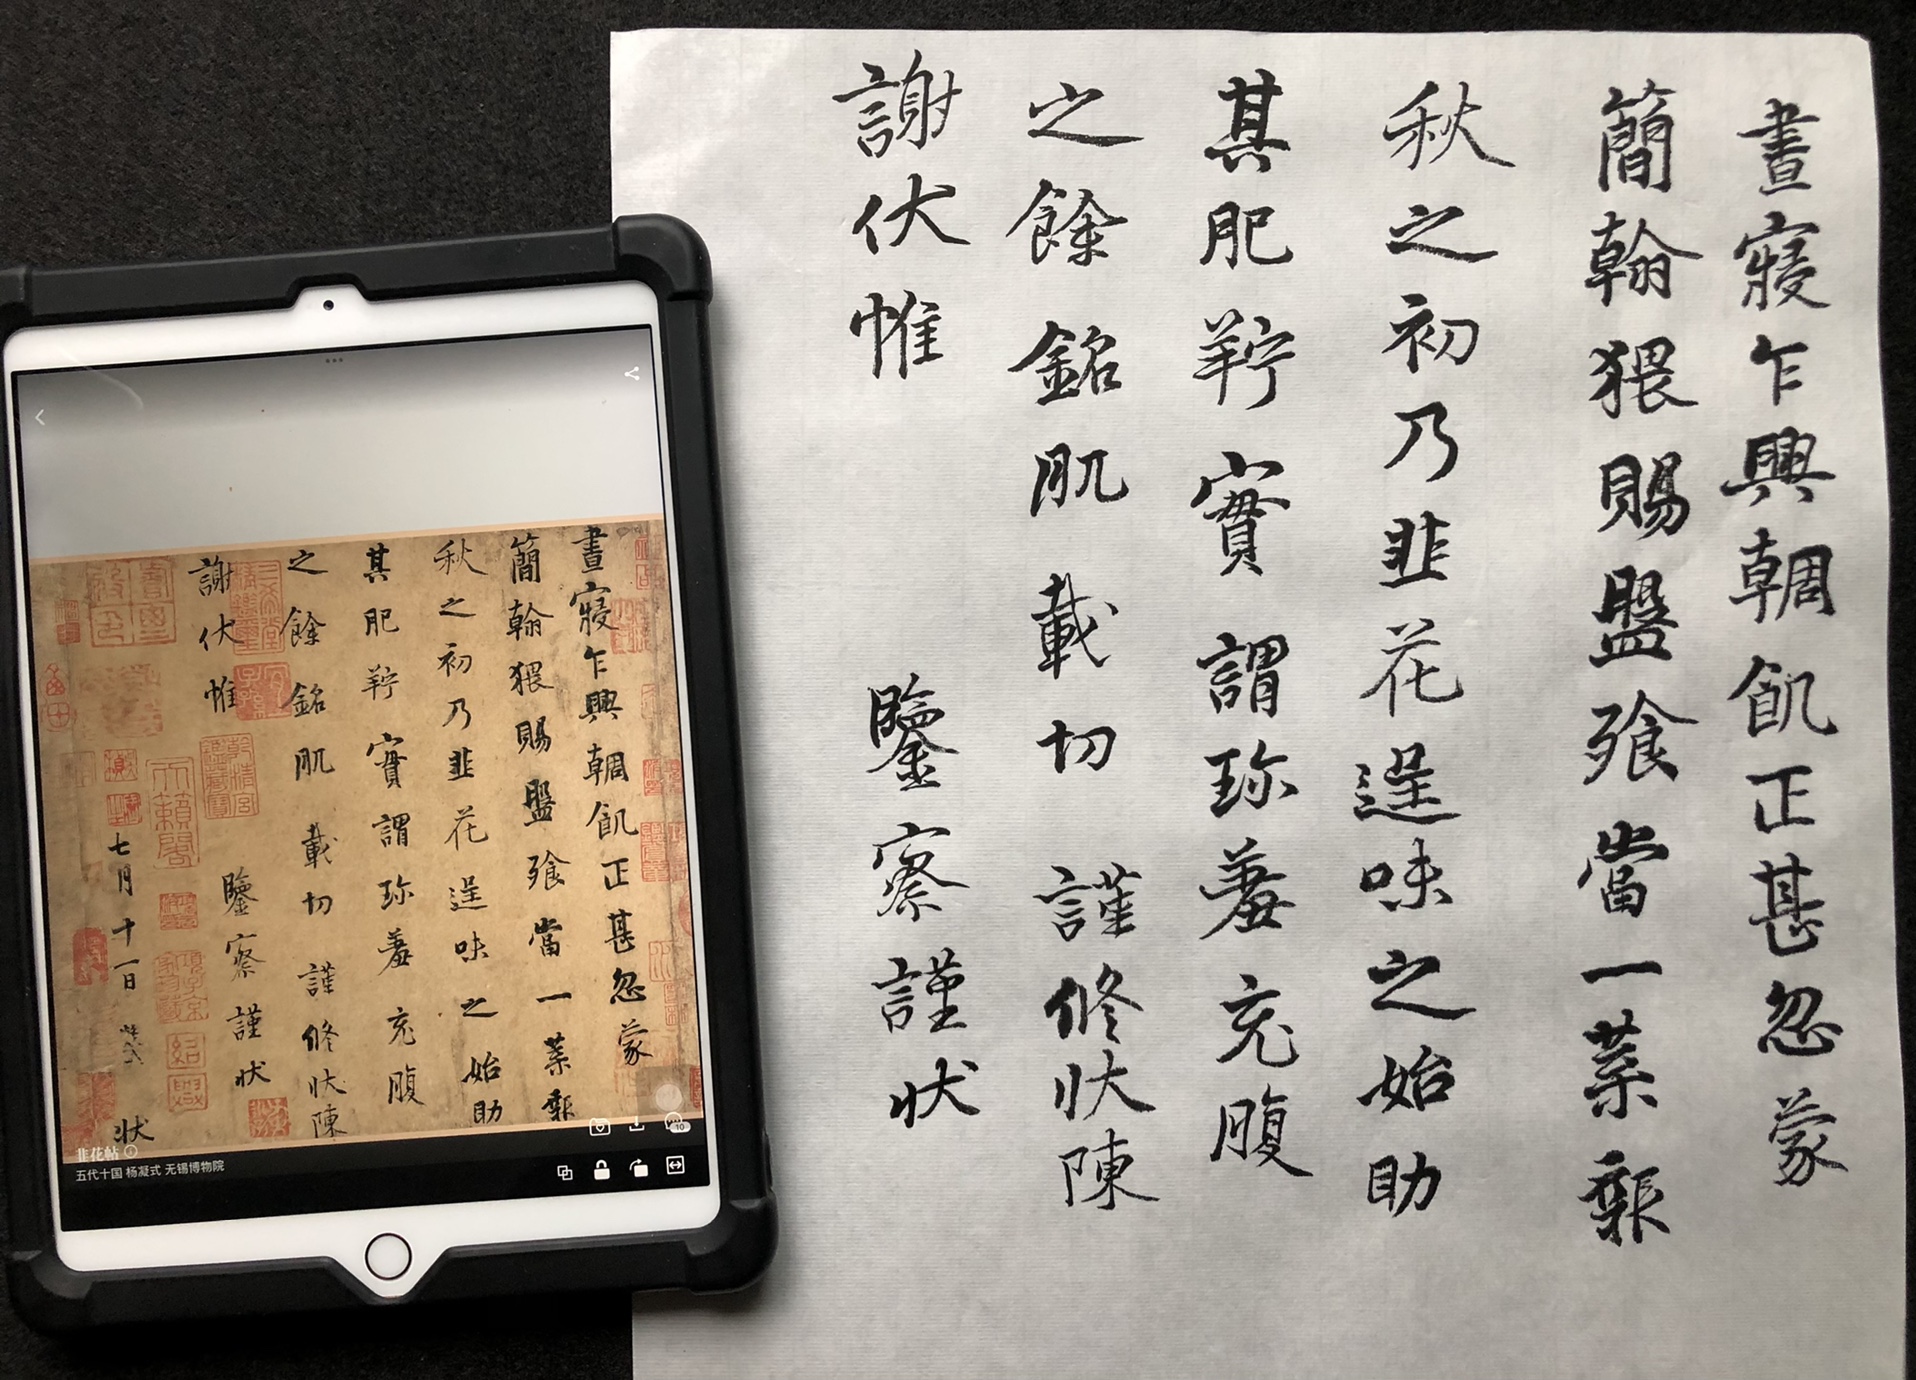 晝寢乍興輖飢正甚忽蒙
簡翰猥賜盤飱當一葉報
秋之初乃韭花逞味之始助
其肥羜實謂珍羞充腹
之餘銘肌載切謹修狀陳
謝伏惟鑒察謹狀
晝寢乍興輖飢正甚忽蒙
簡翰猥賜盤飱當一葉報
秋之初乃韭花逞味之始助
其肥羜實謂珍羞充腹
之餘銘肌載切謹修狀陳
謝伏惟鑒察謹狀
七月十一日狀
韭花帖
五代十国 杨凝式 无锡博物院
10